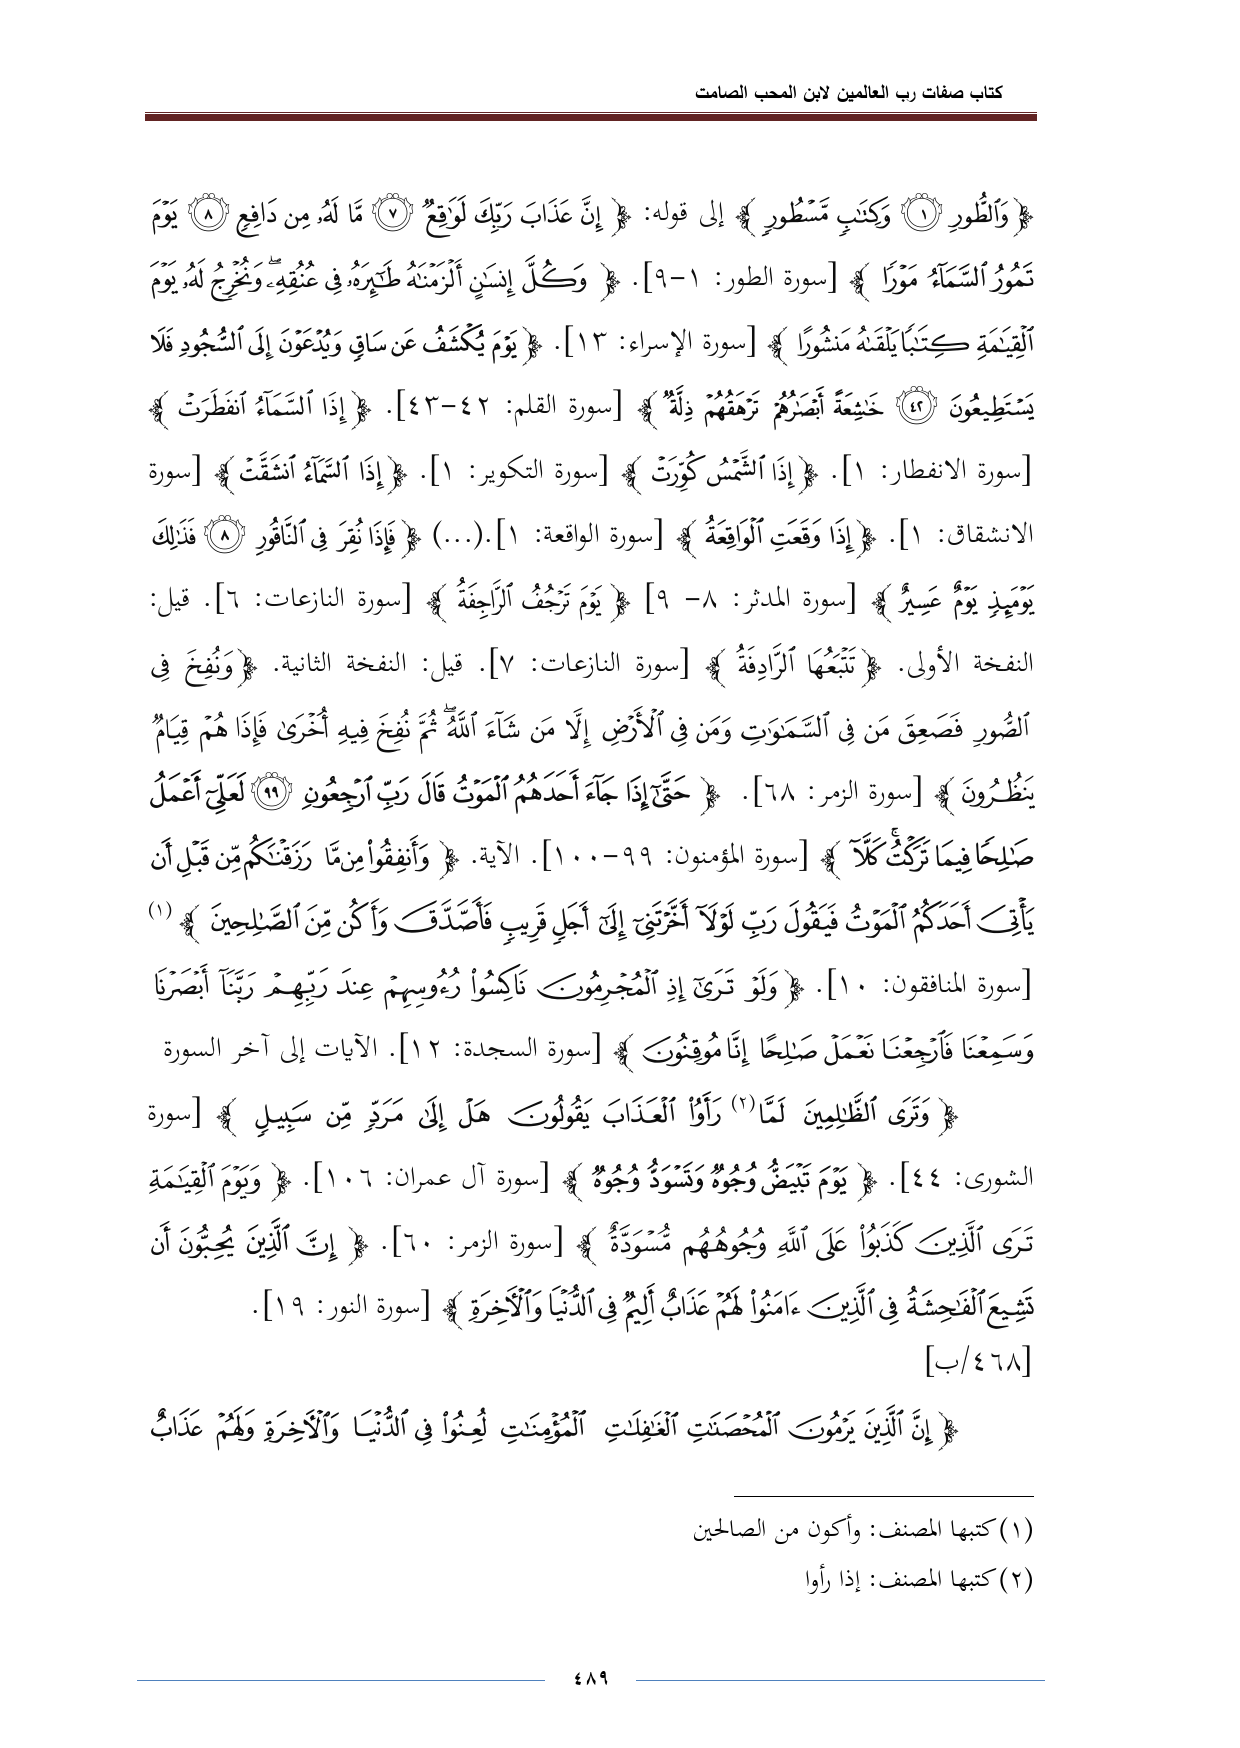 كتاب صفات رب العالمين لابن المحب الصامت
﴿ وَٱلطُّورِ ۝١ وَكِتَٰبٖ مَّسۡطُورٖ ﴾ إلى قوله: ﴿ إِنَّ عَذَابَ رَبِّكَ لَوَٰقِعٞ ۝٧ مَّا لَهُۥ مِن دَافِعٖ ۝٨ يَوۡمَ
تَمُورُ ٱلسَّمَآءُ مَوۡرٗا ﴾ [سورة الطور: ١-٩]. ﴿ وَكُلَّ إِنسَٰنٍ أَلۡزَمۡنَٰهُ طَٰٓئِرَهُۥ فِي عُنُقِهِۦۖ وَنُخۡرِجُ لَهُۥ يَوۡمَ
ٱلۡقِيَٰمَةِ كِتَٰبٗا يَلۡقَىٰهُ مَنشُورًا ﴾ [سورة الإسراء: ١٣]. ﴿ يَوۡمَ يُكۡشَفُ عَن سَاقٖ وَيُدۡعَوۡنَ إِلَى ٱلسُّجُودِ فَلَا
يَسۡتَطِيعُونَ ۝٤٢ خَٰشِعَةً أَبۡصَٰرُهُمۡ تَرۡهَقُهُمۡ ذِلَّةٞ ﴾ [سورة القلم: ٤٢-٤٣]. ﴿ إِذَا ٱلسَّمَآءُ ٱنفَطَرَتۡ ﴾
[سورة الانفطار: ١]. ﴿ إِذَا ٱلشَّمۡسُ كُوِّرَتۡ ﴾ [سورة التكوير: ١]. ﴿ إِذَا ٱلسَّمَآءُ ٱنشَقَّتۡ ﴾ [سورة
الانشقاق: ١]. ﴿ إِذَا وَقَعَتِ ٱلۡوَاقِعَةُ ﴾ [سورة الواقعة: ١].(...) ﴿ فَإِذَا نُقِرَ فِي ٱلنَّاقُورِ ۝٨ فَذَٰلِكَ
يَوۡمَئِذٖ يَوۡمٌ عَسِيرٌ ﴾ [سورة المدثر: ٨- ٩] ﴿ يَوۡمَ تَرۡجُفُ ٱلرَّاجِفَةُ ﴾ [سورة النازعات: ٦]. قيل:
النفخة الأولى. ﴿ تَتۡبَعُهَا ٱلرَّادِفَةُ ﴾ [سورة النازعات: ٧]. قيل: النفخة الثانية. ﴿ وَنُفِخَ فِي
ٱلصُّورِ فَصَعِقَ مَن فِي ٱلسَّمَٰوَٰتِ وَمَن فِي ٱلۡأَرۡضِ إِلَّا مَن شَآءَ ٱللَّهُۖ ثُمَّ نُفِخَ فِيهِ أُخۡرَىٰ فَإِذَا هُمۡ قِيَامٞ
يَنظُرُونَ ﴾ [سورة الزمر: ٦٨]. ﴿ حَتَّىٰٓ إِذَا جَآءَ أَحَدَهُمُ ٱلۡمَوۡتُ قَالَ رَبِّ ٱرۡجِعُونِ ۝٩٩ لَعَلِّيٓ أَعۡمَلُ
صَٰلِحٗا فِيمَا تَرَكۡتُۚ كَلَّآ ﴾ [سورة المؤمنون: ٩٩-١٠٠]. الآية. ﴿ وَأَنفِقُواْ مِن مَّا رَزَقۡنَٰكُم مِّن قَبۡلِ أَن
يَأۡتِيَ أَحَدَكُمُ ٱلۡمَوۡتُ فَيَقُولَ رَبِّ لَوۡلَآ أَخَّرۡتَنِيٓ إِلَىٰٓ أَجَلٖ قَرِيبٖ فَأَصَّدَّقَ وَأَكُن مِّنَ ٱلصَّٰلِحِينَ ﴾ (١)
[سورة المنافقون: ١٠]. ﴿ وَلَوۡ تَرَىٰٓ إِذِ ٱلۡمُجۡرِمُونَ نَاكِسُواْ رُءُوسِهِمۡ عِندَ رَبِّهِمۡ رَبَّنَآ أَبۡصَرۡنَا
وَسَمِعۡنَا فَٱرۡجِعۡنَا نَعۡمَلۡ صَٰلِحًا إِنَّا مُوقِنُونَ ﴾ [سورة السجدة: ١٢]. الآيات إلى آخر السورة
﴿ وَتَرَى ٱلظَّٰلِمِينَ لَمَّا(٢) رَأَوُاْ ٱلۡعَذَابَ يَقُولُونَ هَلۡ إِلَىٰ مَرَدّٖ مِّن سَبِيلٖ ﴾ [سورة
الشورى: ٤٤]. ﴿ يَوۡمَ تَبۡيَضُّ وُجُوهٞ وَتَسۡوَدُّ وُجُوهٞ ﴾ [سورة آل عمران: ١٠٦]. ﴿ وَيَوۡمَ ٱلۡقِيَٰمَةِ
تَرَى ٱلَّذِينَ كَذَبُواْ عَلَى ٱللَّهِ وُجُوهُهُم مُّسۡوَدَّةٌ ﴾ [سورة الزمر: ٦٠]. ﴿ إِنَّ ٱلَّذِينَ يُحِبُّونَ أَن
تَشِيعَ ٱلۡفَٰحِشَةُ فِي ٱلَّذِينَ ءَامَنُواْ لَهُمۡ عَذَابٌ أَلِيمٞ فِي ٱلدُّنۡيَا وَٱلۡأٓخِرَةِ ﴾ [سورة النور: ١٩].
[٤٦٨/ب]
﴿ إِنَّ ٱلَّذِينَ يَرۡمُونَ ٱلۡمُحۡصَنَٰتِ ٱلۡغَٰفِلَٰتِ ٱلۡمُؤۡمِنَٰتِ لُعِنُواْ فِي ٱلدُّنۡيَا وَٱلۡأٓخِرَةِ وَلَهُمۡ عَذَابٌ
(١) كتبها المصنف: وأكون من الصالحين
(٢) كتبها المصنف: إذا رأوا
٤٨٩